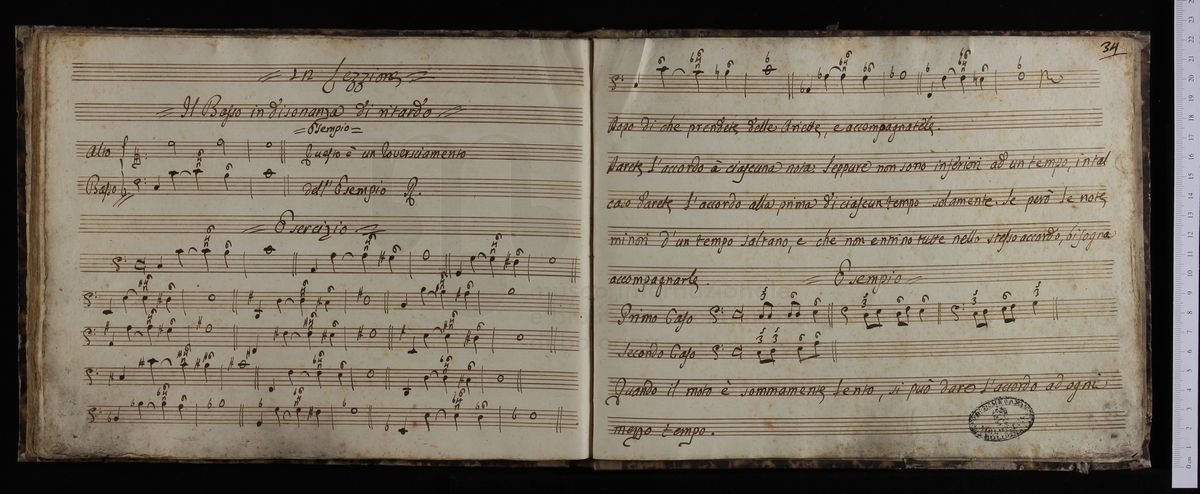 = Lezzione =
= Il Basso in disonanza di ritardo =
= Esempio =
Alto
Questo è un Roversciamento
Basso
dell' Esempio
= Esercizio =
34
Dopo di che prendete delle Ariette, e accompagnatele.
Darete l'accordo à ciascuna nota, seppure non sono inferiori ad un tempo, in tal
caso darete l'accordo alla prima di ciascun tempo solamente. Se però le note
minori d'un tempo saltano, e che non entrino tutte nello stesso accordo, bisogna
accompagnarle.
= Esempio =
Primo Caso
Secondo Caso
Quando il moto è sommamente lento, si può dare l'accordo ad ogni
mezzo tempo.